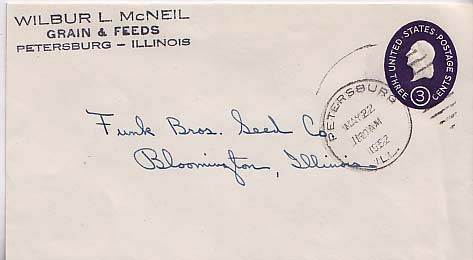 WILBUR L. McNEIL
GRAIN & FEEDS
PETERSBURG - ILLINOIS
UNITED·STATES·POSTAGE
THREE 3 CENTS
PETERSBURG
MAY 22
AM
1952
ILL.
Funk Bros. Seed Co.
Bloomington, Illinois